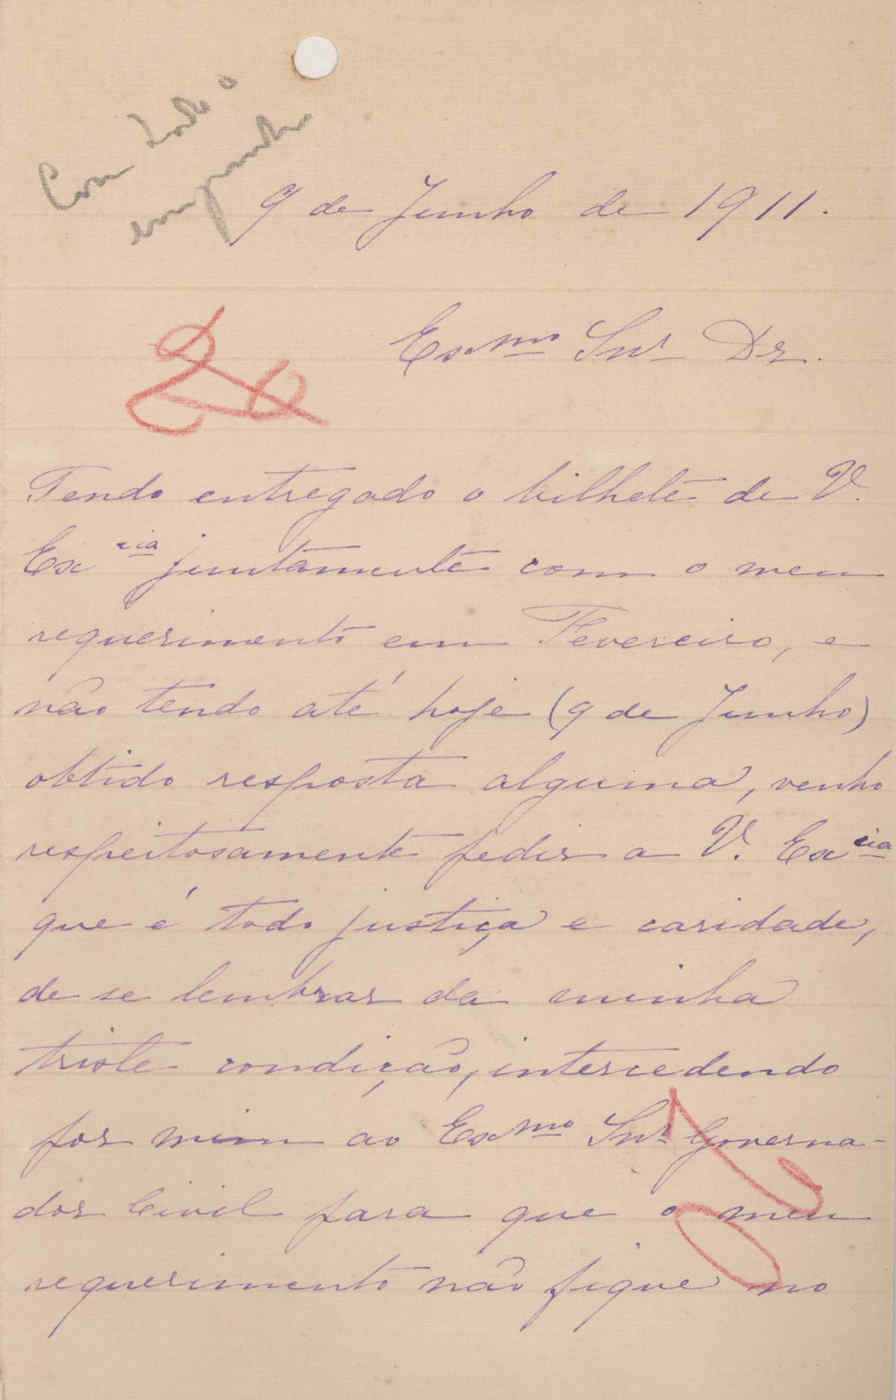 Com todo o
empenho
9 de Junho de 1911.
Ex.mo Snr Dr.
Tendo entregado o bilhete de V.
Ex.cia juntamente com o meu
requerimento em Fevereiro, e
não tendo até hoje (9 de Junho)
obtido resposta alguma, venho
respeitosamente pedir a V. Ex.cia
que é todo justiça e caridade,
de se lembrar da minha
triste condição, intercedendo
por mim ao Ex.mo Snr Governa-
dor Civil para que o meu
requerimento não fique no